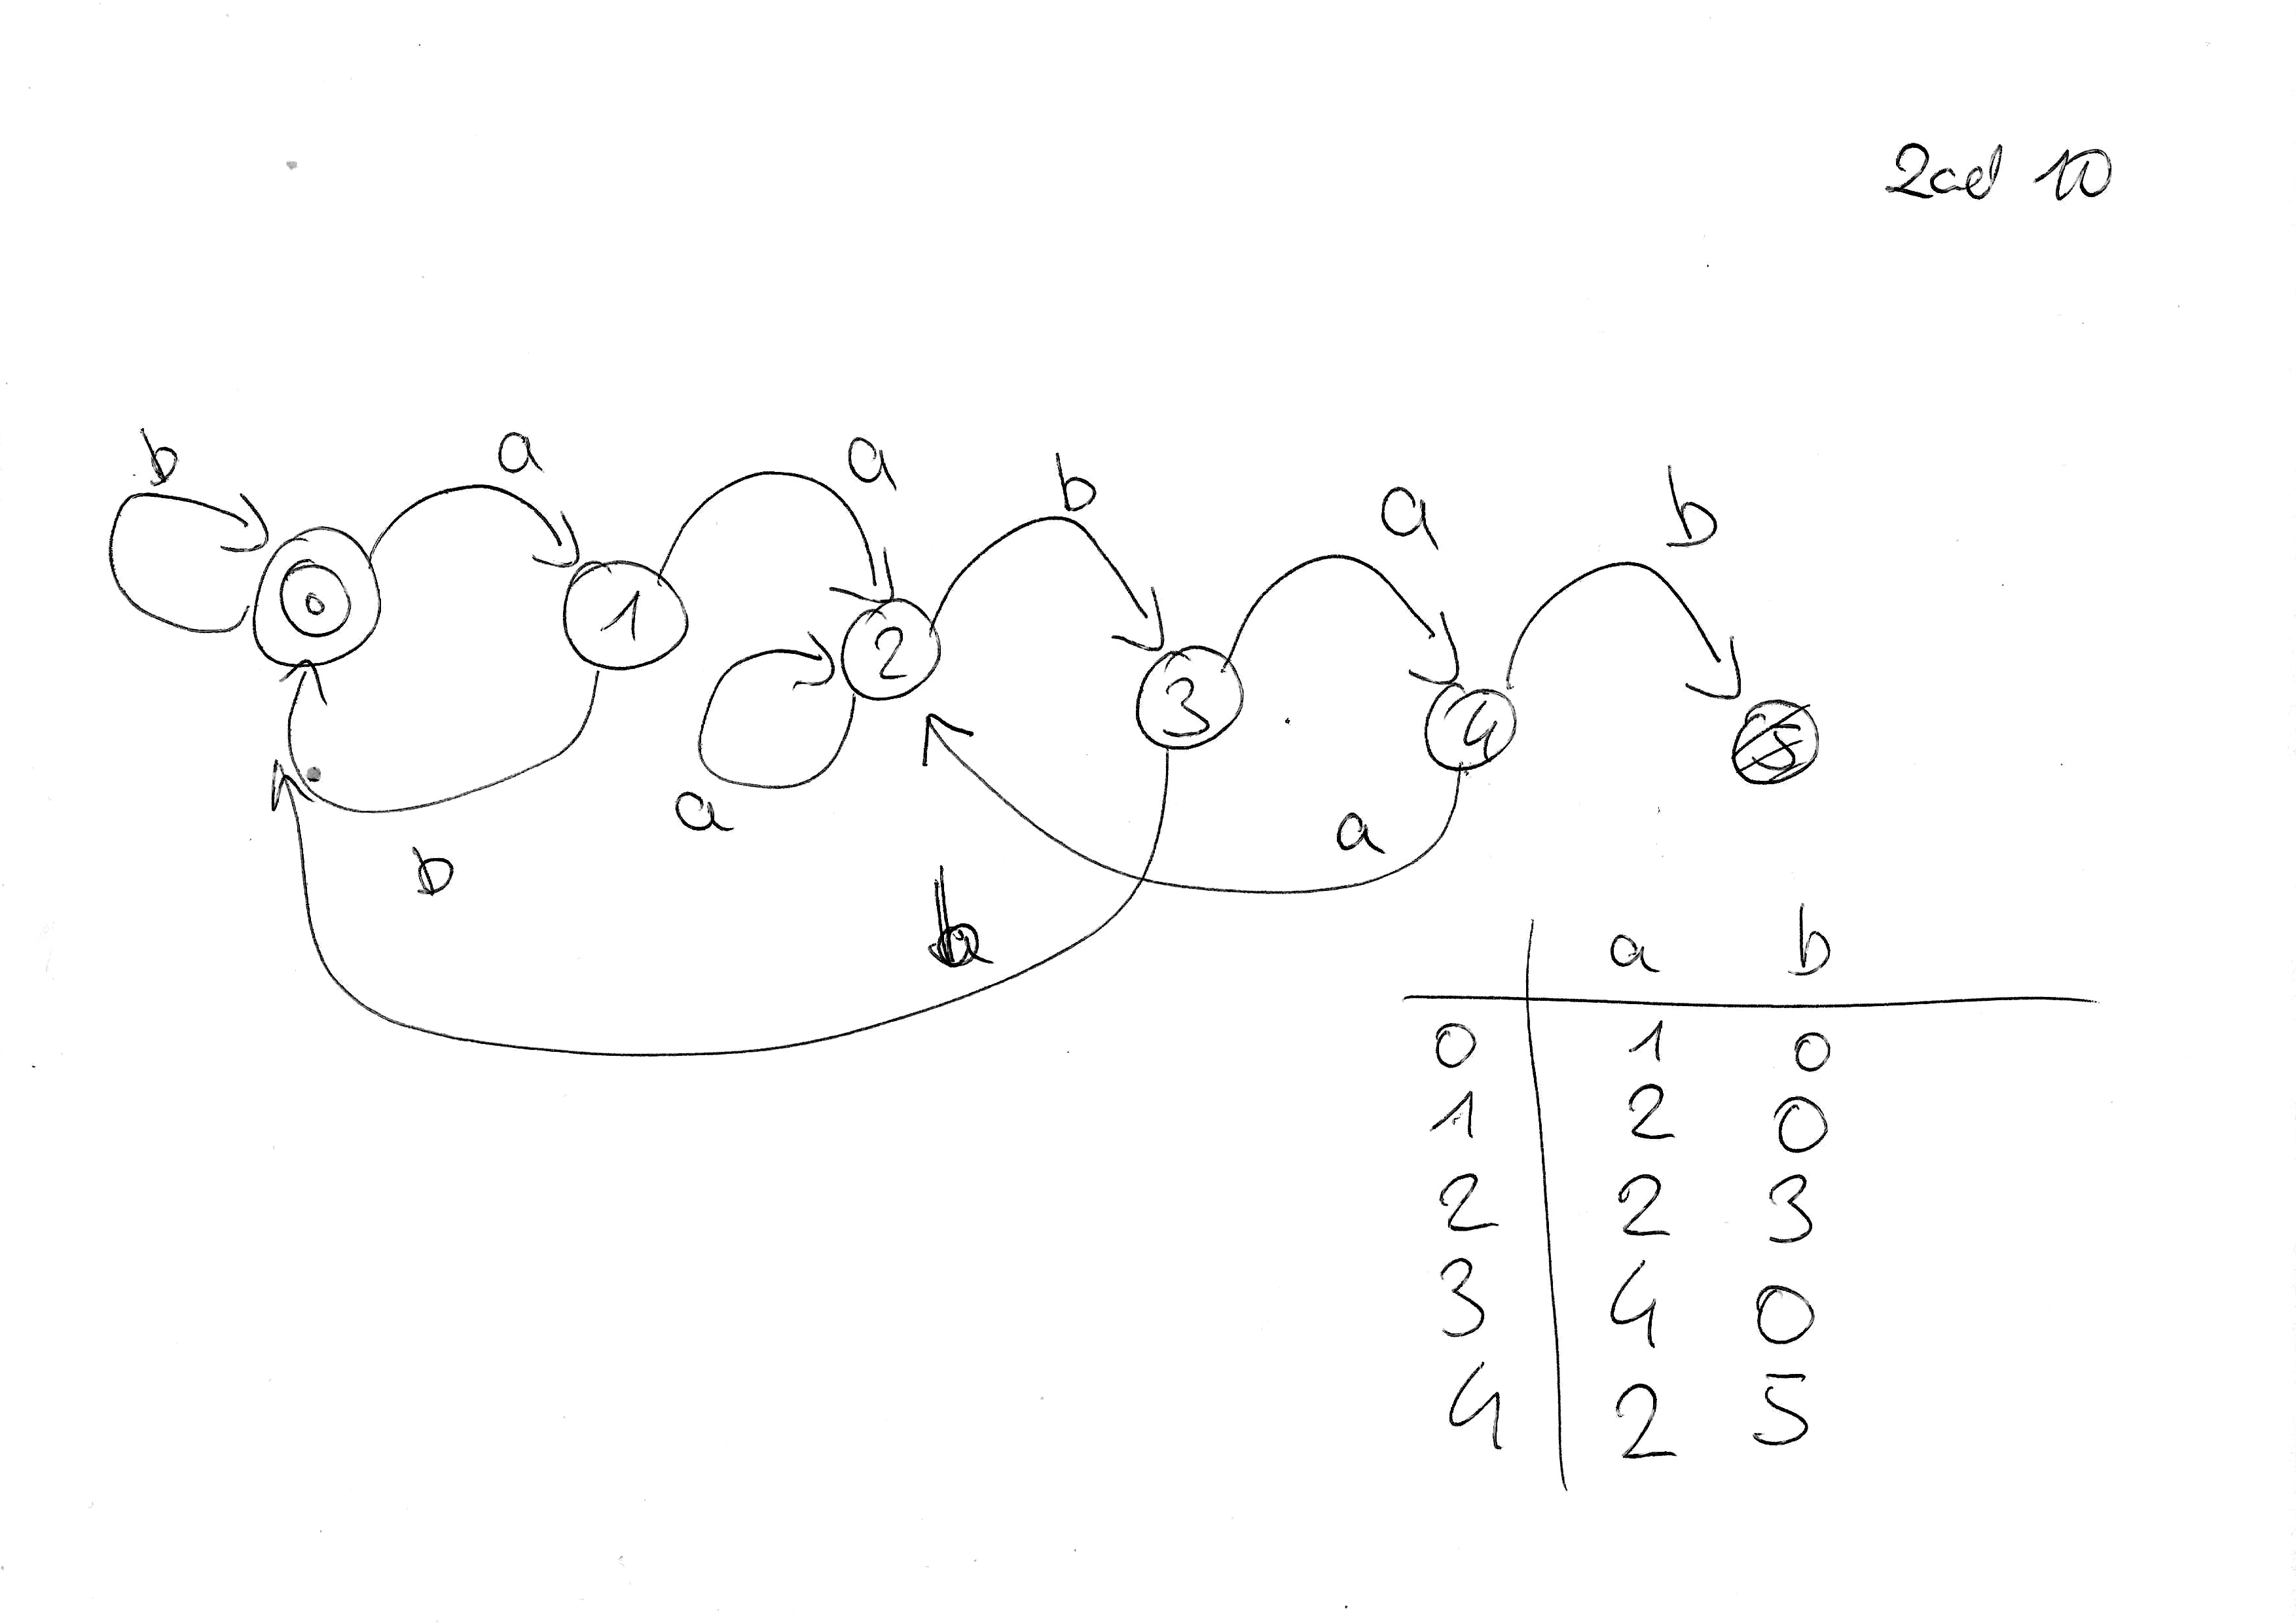 Zad 10
b a a b a b
0 1 2 3 4 5
a a
b b
a b
0 1 0
1 2 0
2 2 3
3 4 0
4 2 5